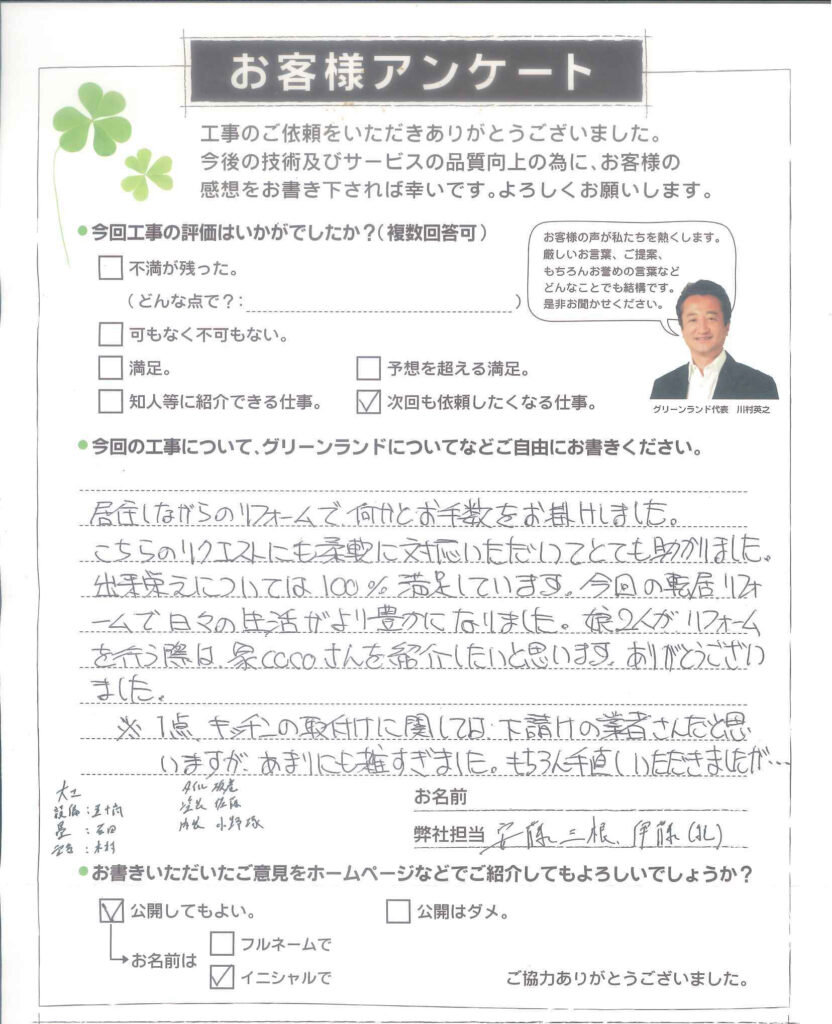 お客様アンケート
工事のご依頼をいただきありがとうございました。
今後の技術及びサービスの品質向上の為に、お客様の
感想をお書き下されば幸いです。よろしくお願いします。
今回工事の評価はいかがでしたか?(複数回答可)
不満が残った。
(どんな点で?: )
可もなく不可もない。
満足。
予想を超える満足。
知人等に紹介できる仕事。
次回も依頼したくなる仕事。
お客様の声が私たちを熱くします。
厳しいお言葉、ご提案、
もちろんお誉めの言葉など
どんなことでも結構です。
是非お聞かせください。
グリーンランド代表 川村英之
今回の工事について、グリーンランドについてなどご自由にお書きください。
居住しながらのリフォームで、何かとお手数をお掛けしました。
こちらのリクエストにも柔軟に対応いただいてとても助かりました。
出来栄えについては100%満足しています。今回の転居リフォ
ームで日々の生活がより豊かになりました。娘2人がリフォーム
を行う際は、家cocoさんを紹介したいと思います。ありがとうござい
ました。
※ 1点、キッチンの取付けに関しては、下請けの業者さんだと思
いますが、あまりにも雑すぎました。もちろん手直しいただきましたが…
大工
設備:五十嵐
畳:石田
木村
タイル
塗装 佐藤
内装 小野塚
お名前
弊社担当 安藤、三根、伊藤(礼)
お書きいただいたご意見をホームページなどでご紹介してもよろしいでしょうか?
公開してもよい。
公開はダメ。
お名前は
フルネームで
イニシャルで
ご協力ありがとうございました。